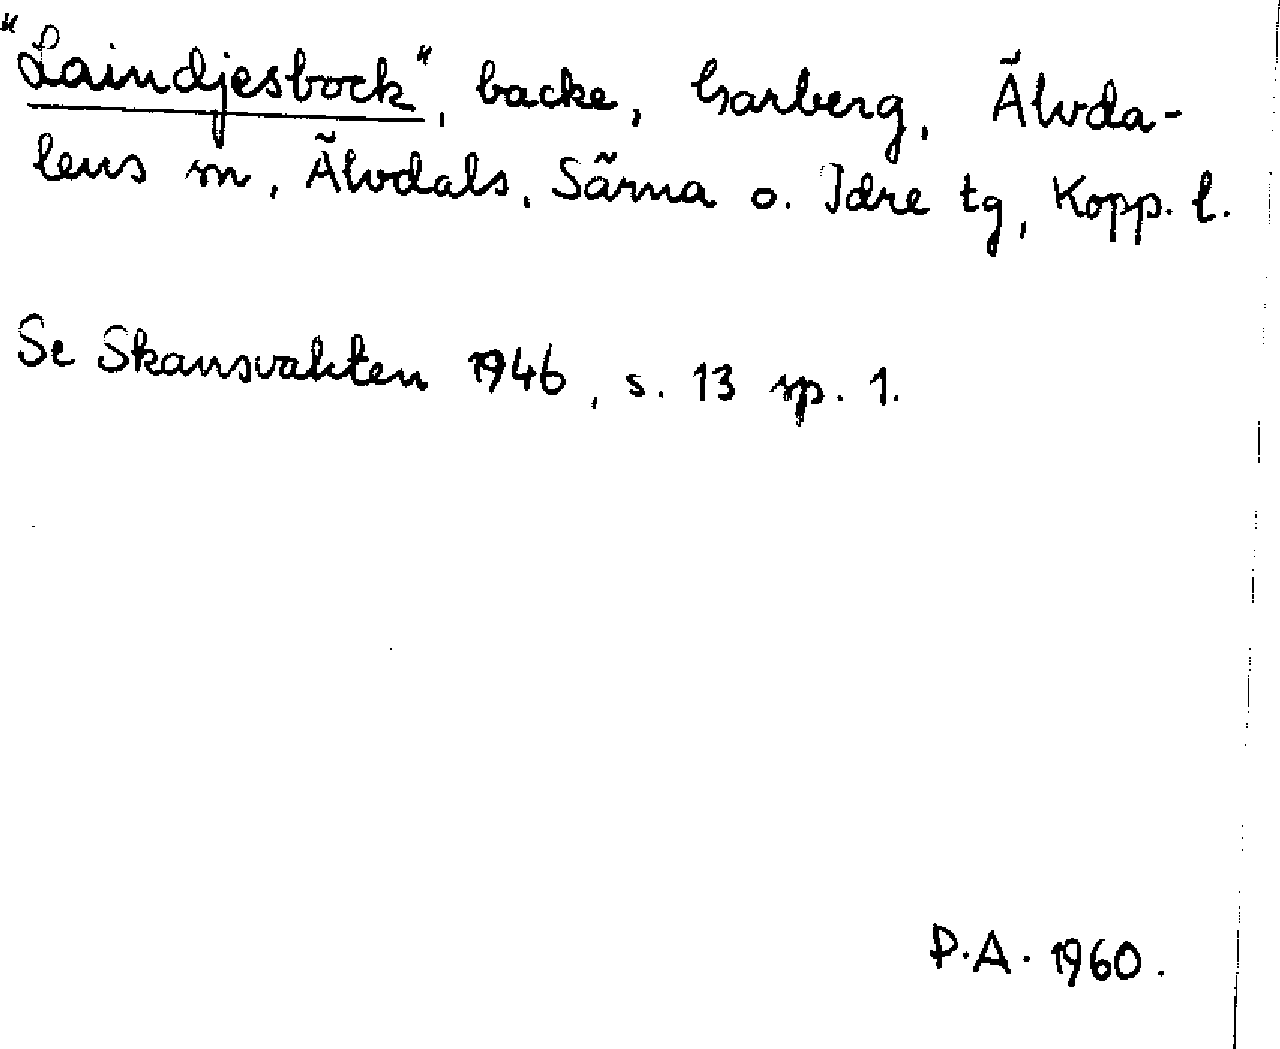 "Laindjesbock", backe, Garberg, Älvda-
lens sn, Älvdals, Särna o. Idre tg, Kopp. l.
Se Skansvakten 1946, s. 13 sp. 1.
P.A. 1960.